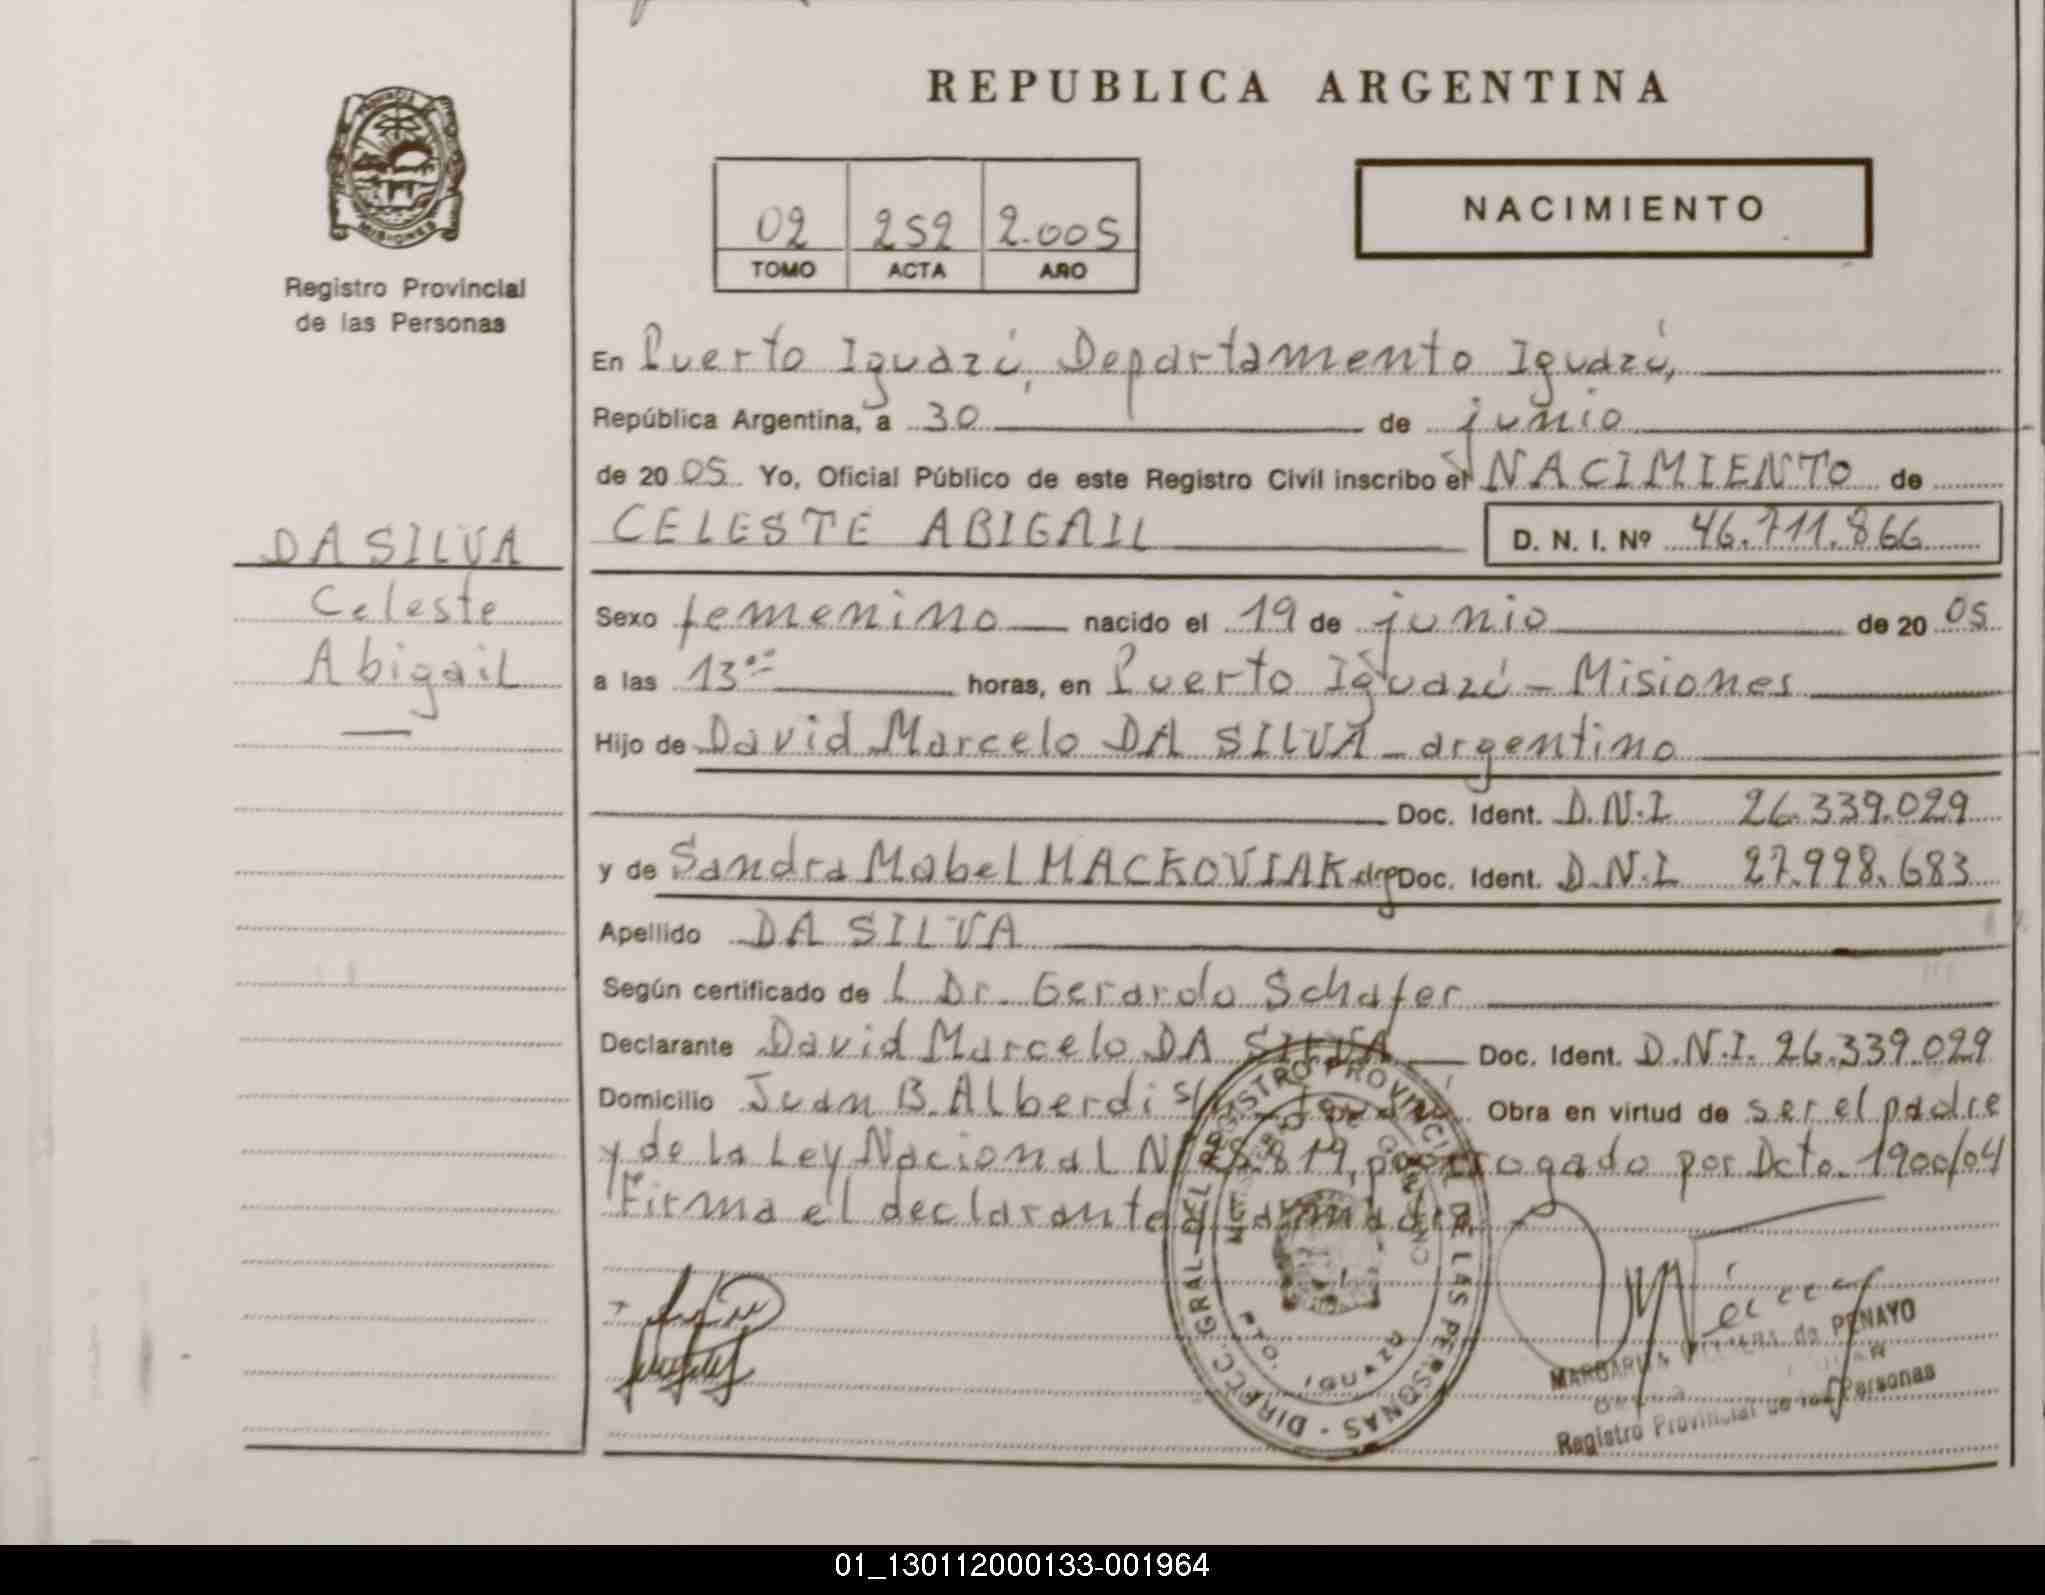 REPUBLICA ARGENTINA
MISIONES
Registro Provincial
de las Personas
02 252 2.005
TOMO ACTA AÑO
NACIMIENTO
En Puerto Iguazú, Departamento Iguazú,
República Argentina, a 30 de junio
de 20 05 Yo, Oficial Público de este Registro Civil inscribo el NACIMIENTO de
CELESTE ABIGAIL D. N. I. Nº 46.711.866
DA SILVA
Celeste
Abigail
Sexo femenino nacido el 19 de junio de 20 05
a las 13 horas, en Puerto Iguazú - Misiones
Hijo de David Marcelo DA SILVA - argentino
Doc. Ident. D.N.I 26.339.029
y de Sandra Mabel MACKOVIAK arg Doc. Ident. D.N.I 27.998.683
Apellido DA SILVA
Según certificado de L Dr. Gerardo Schafer
Declarante David Marcelo DA SILVA Doc. Ident. D.N.I. 26.339.029
Domicilio Juan B. Alberdi s/ Obra en virtud de ser el padre
y de la Ley Nacional Nº 25.819, prorrogado por Dcto. 1900/04
Firma el declarante
DIREC. GRAL. DEL REGISTRO PROVINCIAL DE LAS PERSONAS
DTO. IGUAZU
de PENAYO
Registro Provincial de las Personas
01_130112000133-001964